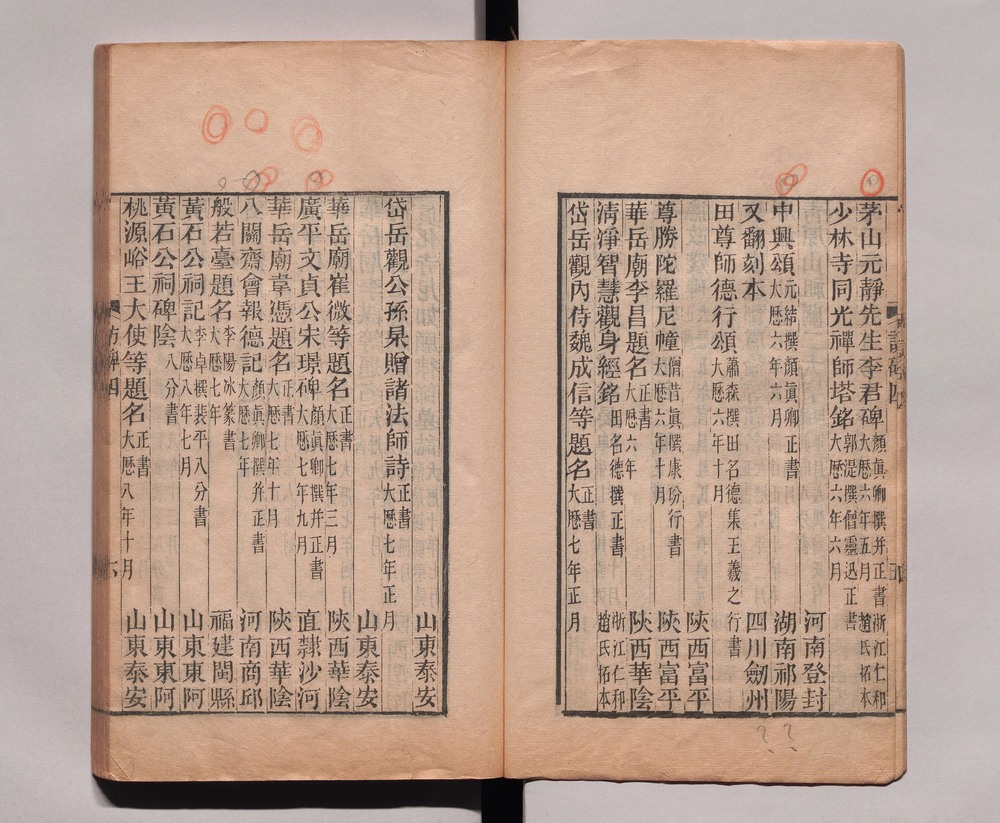 茅山元靜先生李君碑 顏眞卿撰并正書 大歷六年五月 浙江仁和趙氏拓本
少林寺同光禪師塔銘 郭湜撰僧靈迅正書 大歷六年六月 河南登封
中興頌 元結撰顏眞卿正書 大歷六年六月 湖南祁陽
又翻刻本 四川劒州
田尊師德行頌 蕭森撰田名德集王羲之行書 大歷六年十月 陝西富平
尊勝陀羅尼幢 僧昔眞撰康玢行書 大歷六年十月 陝西富平
華岳廟李昌題名 正書 大歷六年 陝西華陰
清淨智慧觀身經銘 田名德撰正書 浙江仁和趙氏拓本
岱岳觀內侍魏成信等題名 正書 大歷七年正月
山東泰安
岱岳觀公孫杲贈諸法師詩 正書 大歷七年正月
山東泰安
華岳廟崔微等題名 正書 大歷七年三月 陝西華陰
廣平文貞公宋璟碑 顏眞卿撰并正書 大歷七年九月 直隸沙河
華岳廟韋慿題名 正書 大歷七年十月 陝西華陰
八關齋會報德記 顏眞卿撰并正書 大歷七年 河南商邱
般若臺題名 李陽冰篆書 大歷七年 福建閩縣
黃石公祠記 李卓撰裴平八分書 大歷八年七月 山東東阿
黃石公祠碑陰 八分書 山東東阿
桃源峪王大使等題名 正書 大歷八年十月 山東泰安
訪碑四
六